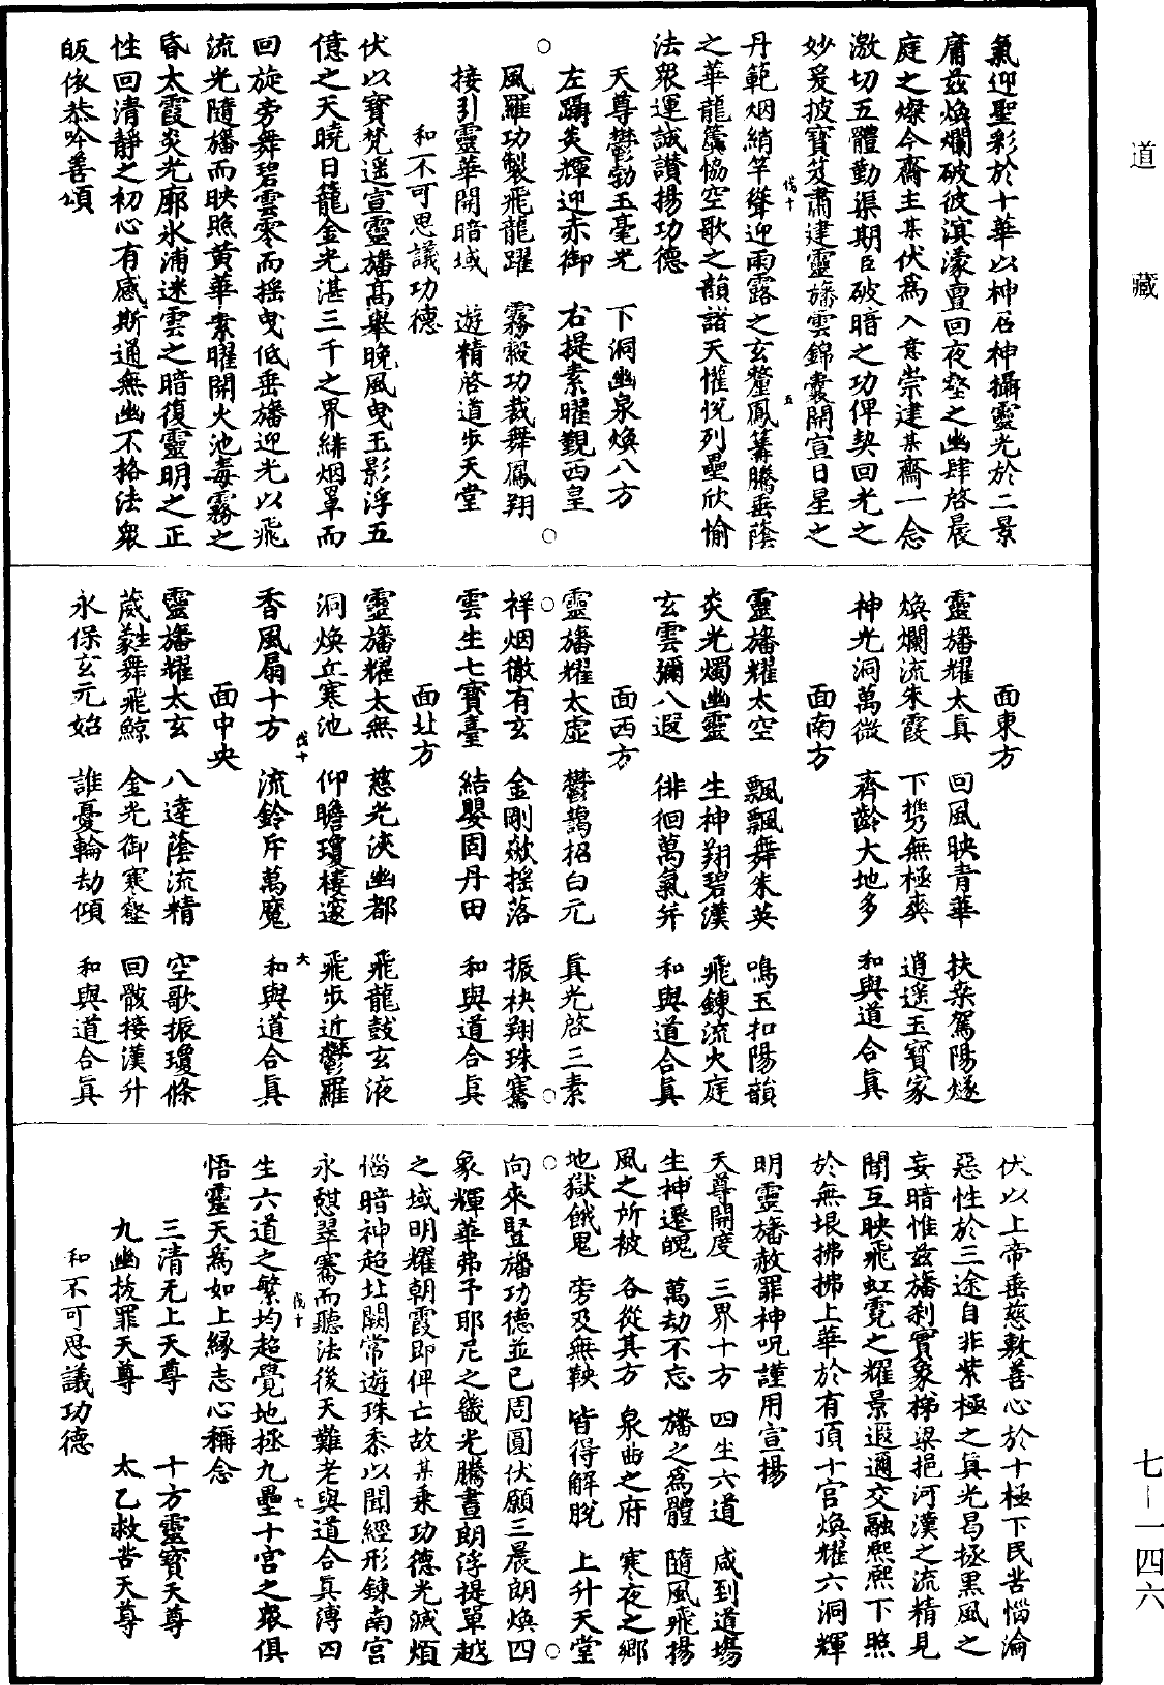 道藏
七—一四六
氣迎聖彩於十華以神召神攝靈光於二景
庸玆煥爛破彼溟濛亶回夜壑之幽肆啓晨
庭之燦今齋主某伏爲入意崇建某齋一念
激切五體勤渠期臣破暗之功俾契回光之
妙爰披寶笈肅建靈旛雲錦囊開宣日星之
丹範烟綃竿聳迎雨露之玄釐鳳篝騰垂蔭
之華龍籛協空歌之韻諸天懽悅列壘欣愉
法衆運誠讃揚功德
天尊鬱勃玉毫光　下洞幽泉煥八方
左躡炎輝迎赤御　右提素曜覲西皇
風羅功製飛龍躍　霧縠功裁舞鳳翔
接引靈華開暗域　遊精啓道步天堂
和不可思議功德
伏以寶梵遥宣靈旛高舉晚風曳玉影浮五
億之天曉日籠金光湛三千之界緋烟罩而
回旋旁舞碧雲零而摇曳低垂旛迎光以飛
流光隨旛而映照黄華素曜開火池毒霧之
昏太霞炎光廓氷浦迷雲之暗復靈明之正
性回清靜之初心有感斯通無幽不格法衆
皈依恭吟善頌
面東方
靈旛耀太真　回風映青華　扶桒駕陽燧
煥爛流朱霞　下㩗無極爽　逍遥玉寶家
神光洞萬微　齊齡大地多　和與道合真
面南方
靈旛耀太空　飄飄舞朱英　鳴玉扣陽韻
炎光燭幽靈　生神翔碧漢　飛鍊流火庭
玄雲彌八遐　徘徊萬氣并　和與道合真
面西方
靈旛耀太虛　鬱藹招白元　真光啓三素
祥烟徹有玄　金剛欻摇落　振袂翔珠騫
雲生七寶臺　結嬰固丹田　和與道合真
面北方
靈旛耀太無　慈光浹幽都　飛龍鼓玄液
洞煥丘寒池　仰瞻瓊樓邃　飛步近鬱羅
香風扇十方　流鈴斥萬魔　和與道合真
面中央
靈旛耀太玄　八達蔭流精　空歌振瓊條
葳蕤舞飛鯨　金光御寒壑　回骸接漢升
永保玄元始　誰憂輪劫傾　和與道合真
伏以上帝垂慈敷善心於十極下民苦惱淪
惡性於三途自非紫極之真光曷拯黑風之
妄暗惟玆旛刹實象梯梁挹河漢之流精見
聞互映飛虹霓之耀景遐邇交融熙熙下照
於無垠拂拂上華於有頂十官煥耀六洞輝
明靈旛赦罪神呪謹用宣揚
天尊開度　三界十方　四生六道　咸到道場
生神遷魄　萬劫不忘　旛之爲體　隨風飛揚
風之所被　各從其方　泉曲之府　寒夜之鄉
地獄餓鬼　旁及無鞅　皆得解脫　上升天堂
向來竪旛功德並已周圓伏願三晨朗煥四
象輝華弗予耶尼之畿光騰晝朗浮提單越
之域明耀朝霞即俾亡故某乗功德光滅煩
惱暗神超北闕常遊珠黍以聞經形鍊南宮
永憇翠騫而聽法後天難老與道合真溥四
生六道之繁均超覺地拯九壘十宮之衆俱
悟靈天爲如上緣志心稱念
三清无上天尊　十方靈寶天尊
九幽拔罪天尊　太乙救苦天尊
和不可思議功德